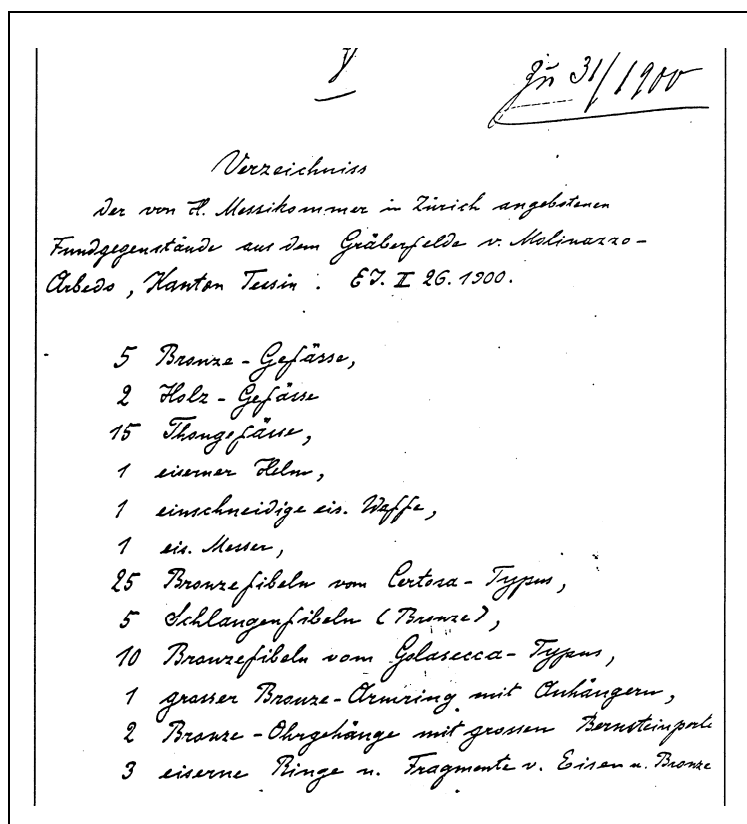 V
zu 31/1900
Verzeichniss
der von H. Messikommer in Zürich angebotenen
Fundgegenstände aus dem Gräberfelde v. Molinazzo-
Arbedo, Kanton Tessin. EJ. II 26. 1900.
5 Bronze-Gefässe,
2 Holz-Gefässe
15 Thongefässe,
1 eiserner Helm,
1 einschneidige eis. Waffe,
1 eis. Messer,
25 Bronzefibeln vom Certosa-Typus,
5 Schlangenfibeln (Bronze),
10 Bronzefibeln vom Golasecca-Typus,
1 grosser Bronze-Armring mit Anhängern,
2 Bronze-Ohrgehänge mit grossen Bernsteinperle
3 eiserne Ringe u. Fragmente v. Eisen u. Bronze